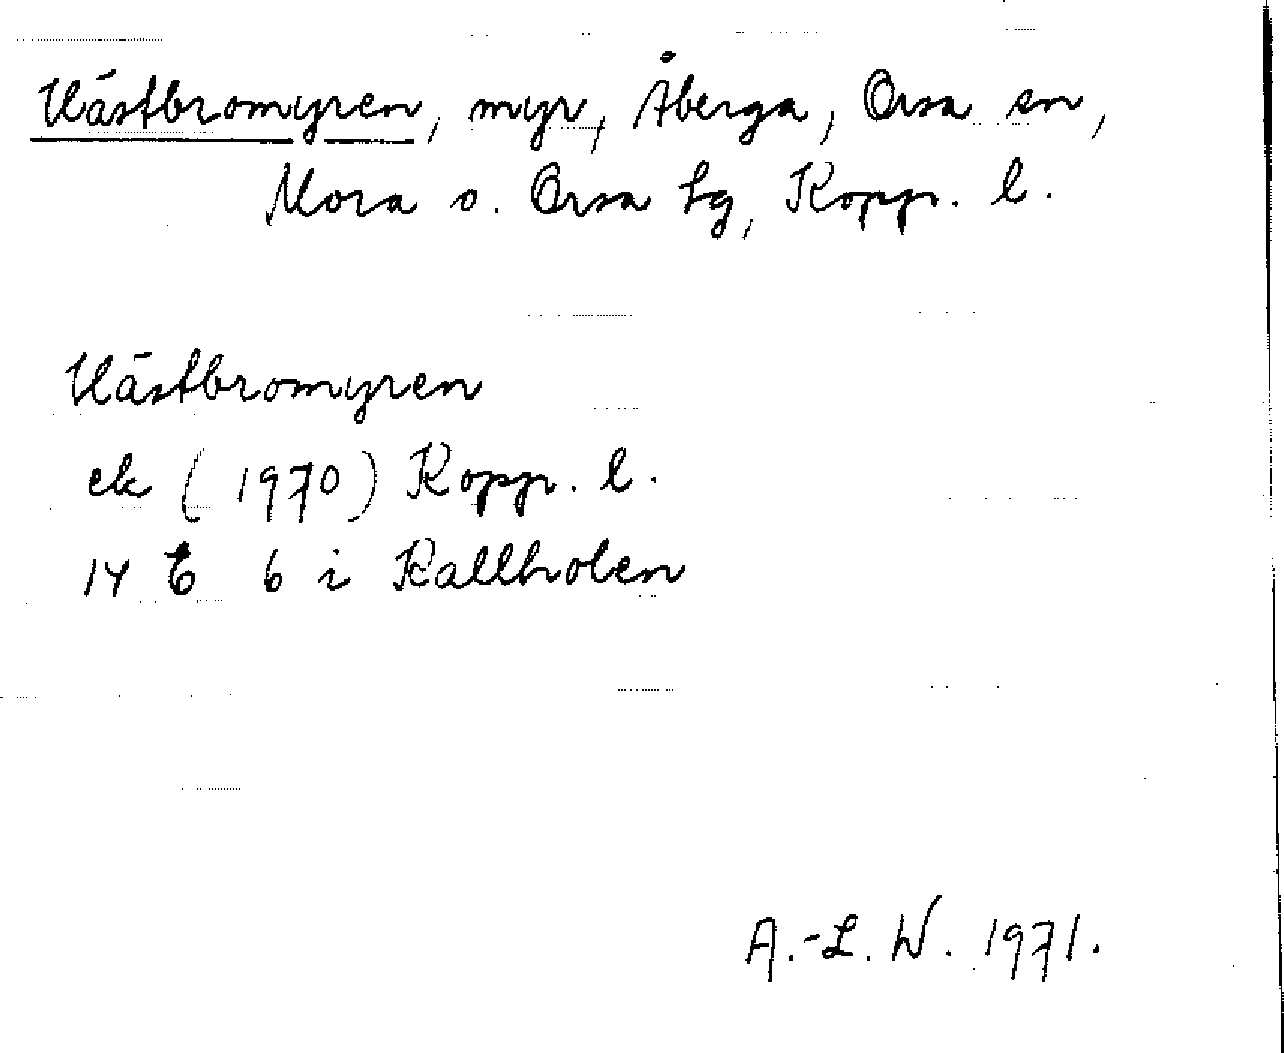 Västbromyren, myr, Åberga, Orsa sn,
Mora o. Orsa tg, Kopp. l.
Västbromyren
ek (1970) Kopp. l.
14 E 6 i Kallholen
A.-L. W. 1971.